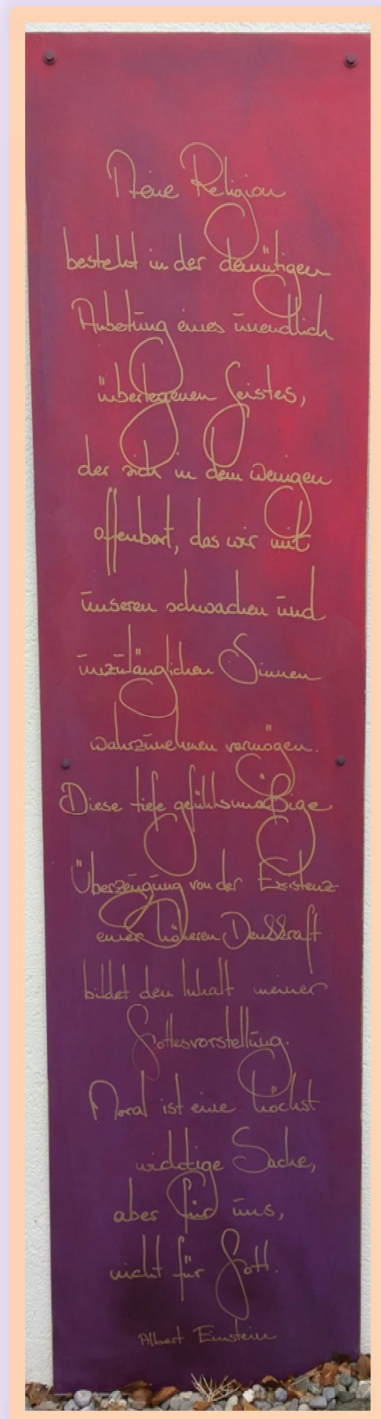 Meine Religion
besteht in der demütigen
Anbetung eines unendlich
überlegenen Geistes,
der sich in dem wenigen
offenbart, das wir mit
unseren schwachen und
unzulänglichen Sinnen
wahrzunehmen vermögen.
Diese tiefe gefühlsmäßige
Überzeugung von der Existenz
einer höheren Denkkraft
bildet den Inhalt meiner
Gottesvorstellung.
Moral ist eine höchst
wichtige Sache,
aber für uns,
nicht für Gott.
Albert Einstein